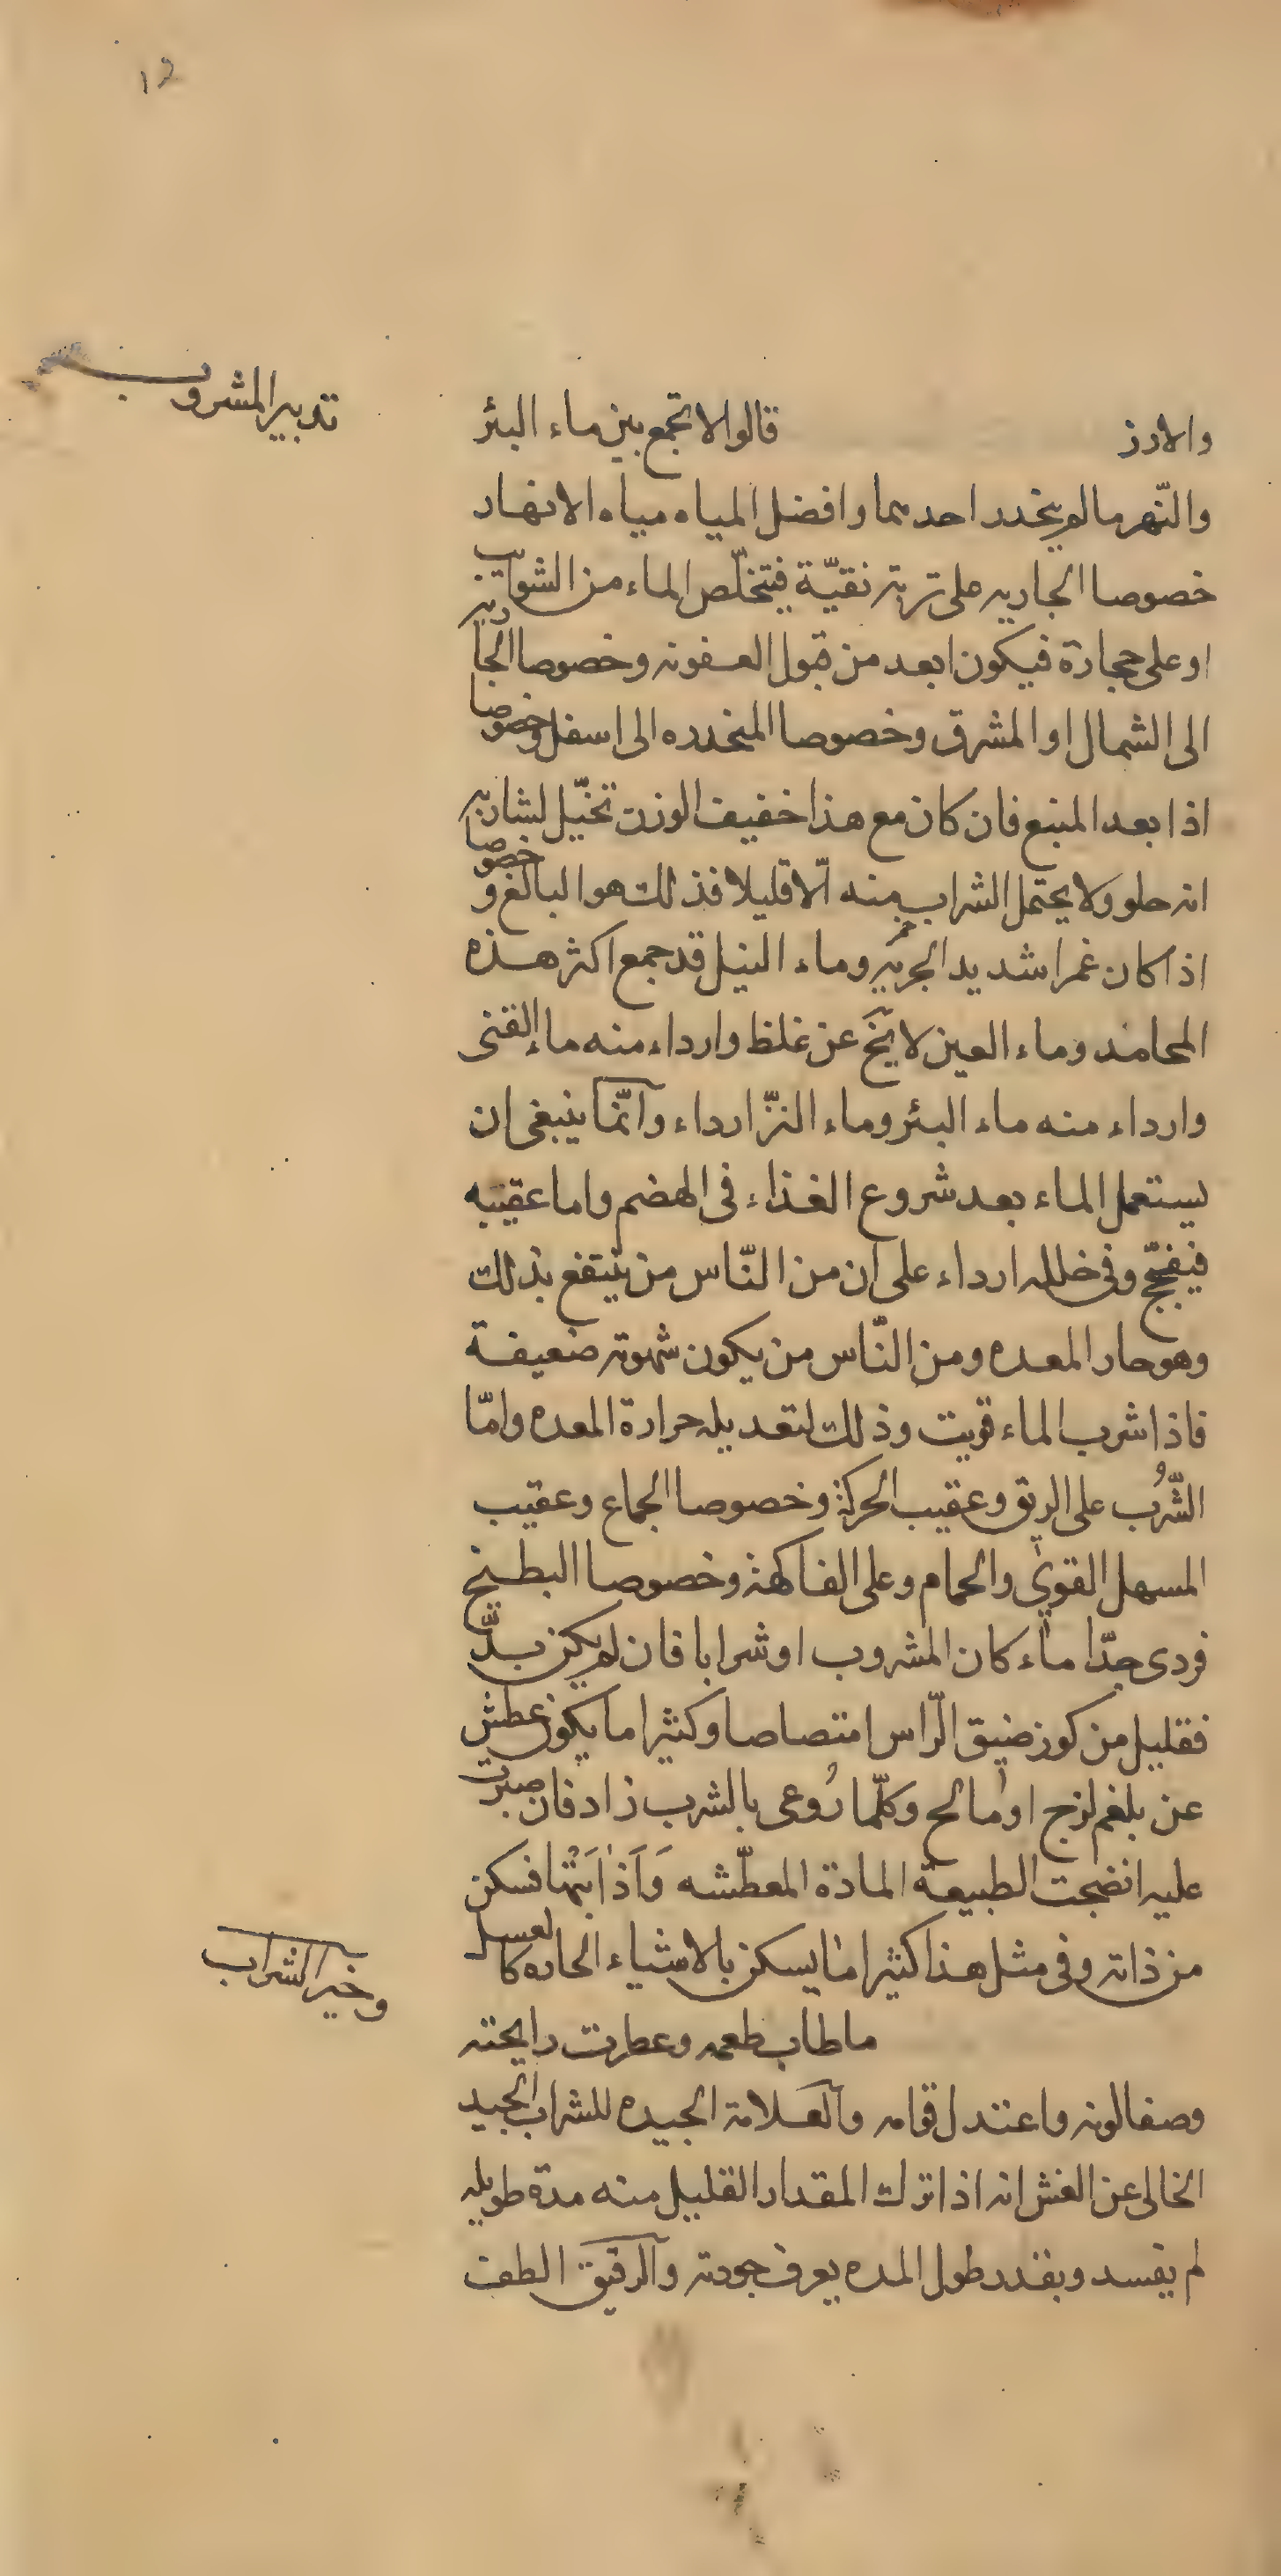 ١٢
تدبير المشروب
والارز قالوا لا تجمع بين ماء البئر
والنّهر ما لم ينحدر احدهما وافضل المياه مياه الانهار
خصوصا الجاريه على تربة نقيّة فيتخلّص الماء من الشوائب
او على حجارة فيكون ابعد من قبول العفونه وخصوصا الجاريه
الى الشمال او المشرق وخصوصا المنحدره الى اسفل وخصوصا
اذا بعد المنبع فان كان مع هذا خفيف الوزن تخيّل لشاربه
انه حلو ولا يحتمل الشراب منه الّا قليلا فذلك هو البالغ وخصوصا
اذا كان غمرا شديد الجريه وماء النيل قد جمع اكثر هذه
المحامد وماء العين لا يخ عن غلظ وارداء منه ماء القنى
وارداء منه ماء البئر وماء النزّ ارداء وانّما ينبغى ان
يستعمل الماء بعد شروع الغذاء فى الهضم واما عقيبه
فيفجّج وفى خلله ارداء على ان من النّاس من ينتفع بذلك
وهو حار المعده ومن النّاس من يكون شهوته ضعيفة
فاذا شرب الماء قويت وذلك لتعديله حرارة المعده وامّا
الشّرُب على الريق وعقيب الحركة وخصوصا الجماع وعقيب
المسهل القوى والحمام وعلى الفاكهة وخصوصا البطيخ
فردى جدّا ماء كان المشروب او شرابا فان لم يكن بدّ
فقليل من كوز ضيق الرّاس امتصاصا وكثيرا ما يكون عطش
عن بلغم لزج او مالح وكلّما رُوعى بالشرب زاد فان صبرت
عليه انضجت الطبيعة المادة المعطّشه وَاَذابَتْها فسكن
من ذاته وفى مثل هذا كثيرا ما يسكن بالاشياء الحاره كالعسل
وخير الشراب
ما طاب طعمه وعطرت رايحته
وصفا لونه واعتدل قوامه والعلامة الجيده للشراب الجيد
الخالى عن الغش انه اذا ترك المقدار القليل منه مدة طويله
لم يفسد وبقدر طول المده يعرف جودته والرقيق الطف